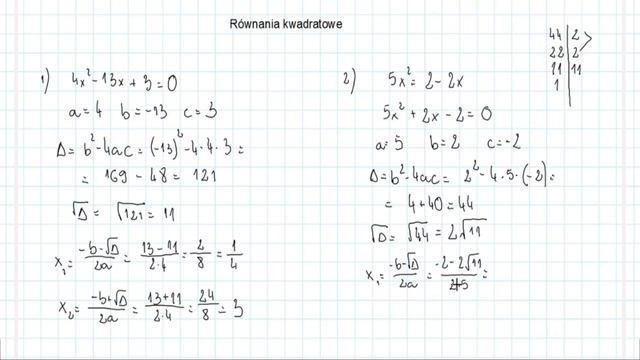 Równania kwadratowe
1) 4x² - 13x + 3 = 0
a = 4 b = -13 c = 3
Δ = b² - 4ac = (-13)² - 4·4·3 =
= 169 - 48 = 121
√Δ = √121 = 11
x₁ = (-b-√Δ)/2a = (13-11)/2·4 = 2/8 = 1/4
x₂ = (-b+√Δ)/2a = (13+11)/2·4 = 24/8 = 3
2) 5x² = 2 - 2x
5x² + 2x - 2 = 0
a = 5 b = 2 c = -2
Δ = b² - 4ac = 2² - 4·5·(-2) =
= 4 + 40 = 44
√Δ = √44 = 2√11
x₁ = (-b-√Δ)/2a = (-2-2√11)/2·5 =
44 | 2
22 | 2
11 | 11
1 |